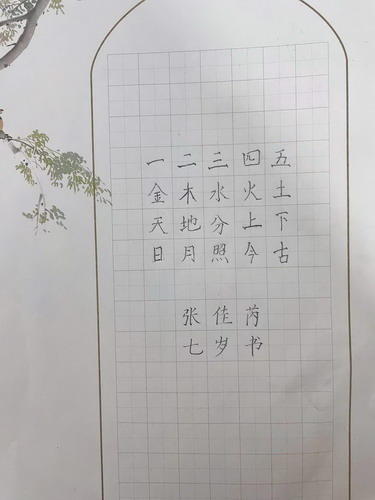 一二三四五
金木水火土
天地分上下
日月照今古
张佳芮
七岁书